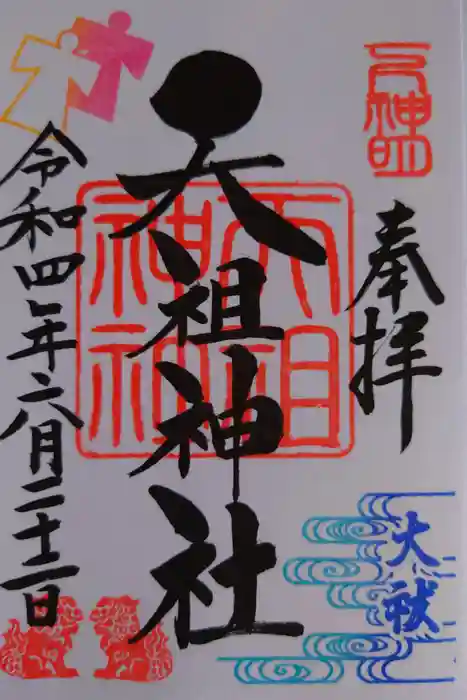 元神明
奉拝
天祖神社
天祖
神社
令和四年六月二十二日
大祓